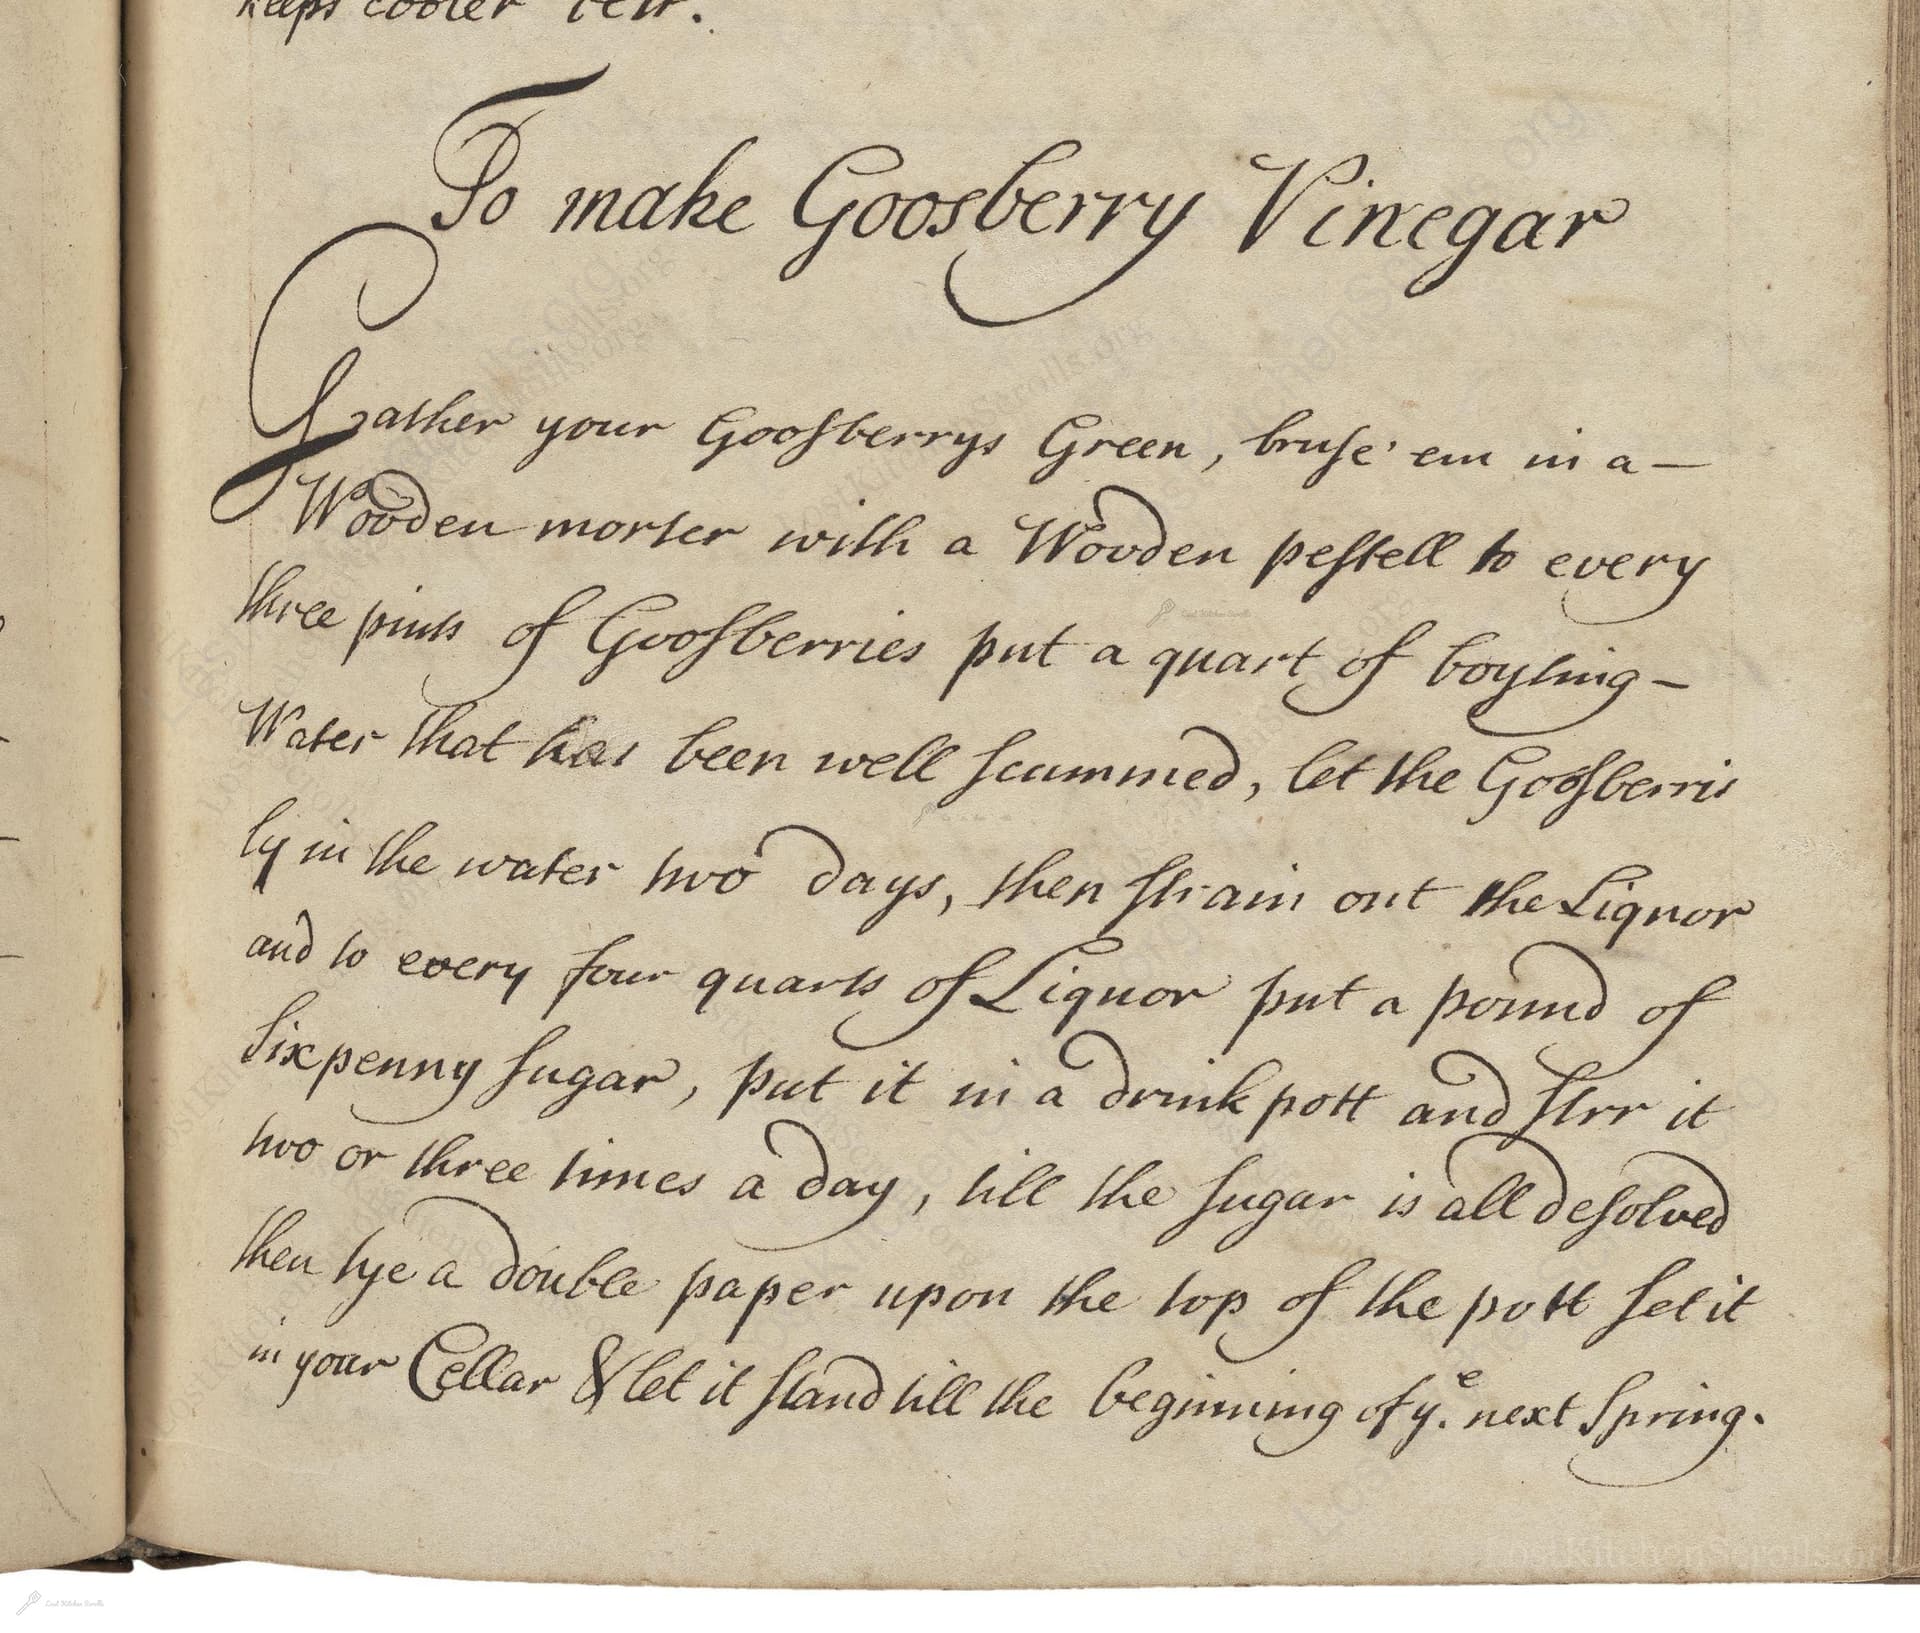 keeps cooler
To make Goosberry Vinegar
Gather your Gooſberrys Green, bruſe 'em in a —
Wooden morter with a Wooden peſtell to every
three pints of Gooſberries put a quart of boyling —
Water that has been well ſcummed, let the Gooſberris
ly in the water two days, then ſtrain out the Liquor
and to every four quarts of Liquor put a pound of
Sixpenny ſugar, put it in a drink pott and ſtrr it
two or three times a day, till the ſugar is all deſolved
then tye a double paper upon the top of the pott ſet it
in your Cellar & let it ſtand till the beginning of yᵉ. next Spring.
LostKitchenScrolls.org
Lost Kitchen Scrolls